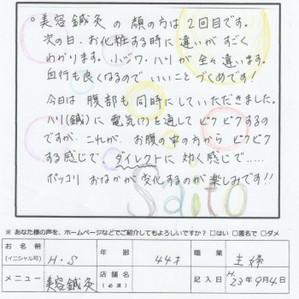 ○美容鍼灸 の 顔の方は2回目です。
次の日、お化粧する時に違いがすごく
わかります。小ジワ・ハリが全々違います。
血行も良くなるので いいこと づくめです!
今日は 腹部も 同時にしていただきました。
ハリ(鍼)に電気(?)を通して ピクピクするの
ですが、これが、お腹の中の方から ピクピク
する感じで ダイレクトに 効く感じで……
ポッコリ おなかが変化するのが楽しみです!!
Saito
※ あなた様の声を、ホームページなどでご紹介してもよろしいですか? □はい □匿名で □ダメ
お名前(イニシャル可) H・S 年齢 44才 職業 主婦
メニュー 美容鍼灸 店舗名(必須) 記入日 H.23年9月4日